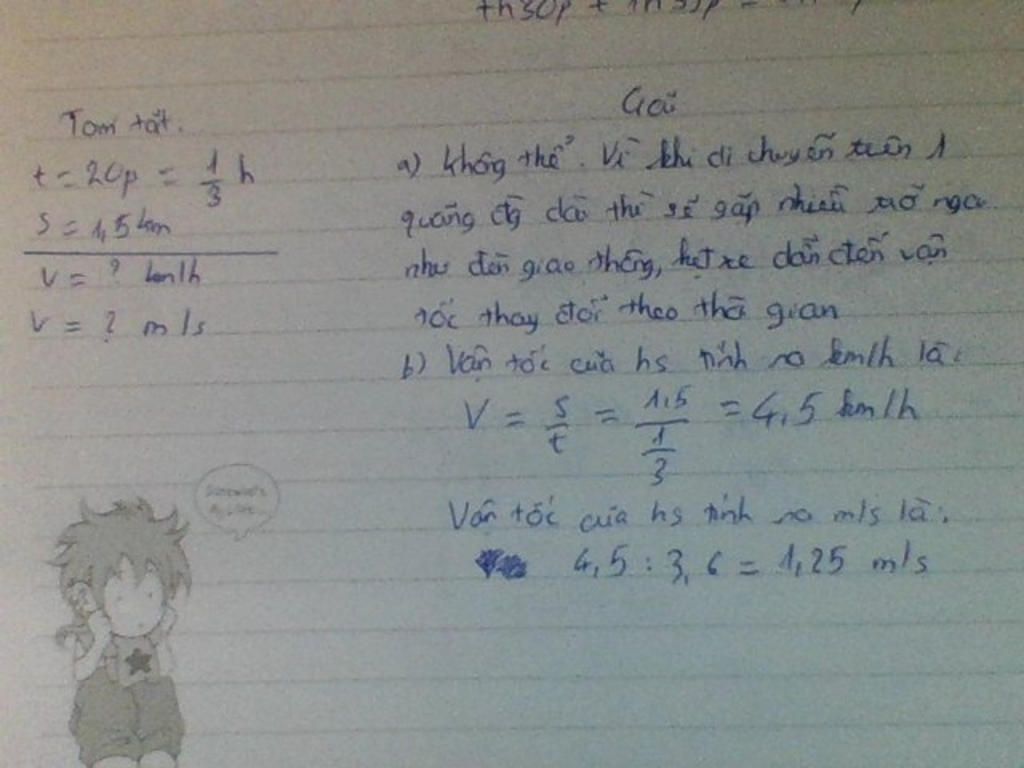 Tóm tắt.
t = 20p = 1/3 h
s = 1,5 km
v = ? km/h
v = ? m/s
Giải
a) Không thể. Vì khi di chuyển trên 1
quãng đg dài thì sẽ gặp nhiều trở ngại
như đèn giao thông, kẹt xe dẫn đến vận
tốc thay đổi theo thời gian
b) Vận tốc của hs tính ra km/h là:
V = s/t = 1,5/(1/3) = 4,5 km/h
Vận tốc của hs tính ra m/s là:
4,5 : 3,6 = 1,25 m/s